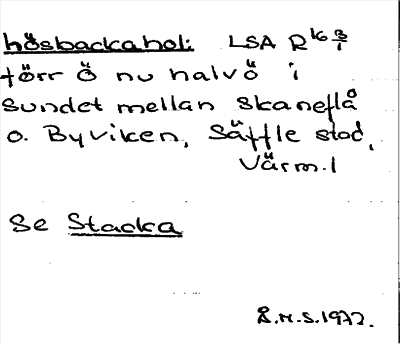 hösbackahol: LSA R 16 3/1
förr ö nu halvö i
sundet mellan Skaneflå
o. Byviken, Säffle stad,
Värml
Se Stacka
R.M.S. 1972.